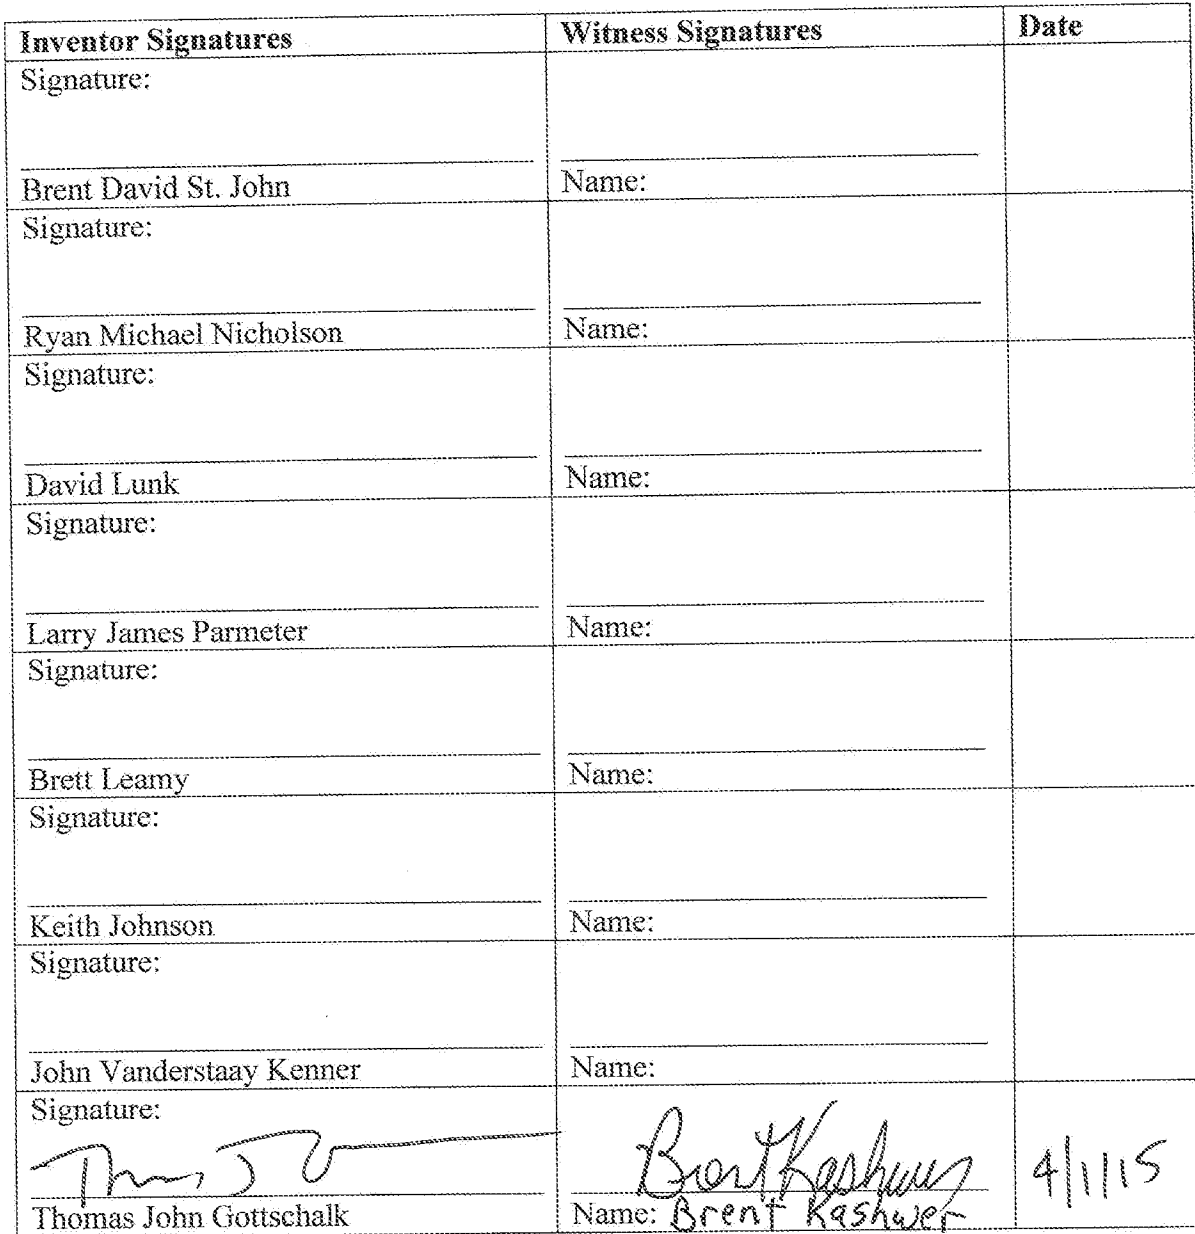 Inventor Signatures Witness Signatures Date
Signature:
Brent David St. John Name:
Signature:
Ryan Michael Nicholson Name:
Signature:
David Lunk Name:
Signature:
Larry James Parmeter Name:
Signature:
Brett Leamy Name:
Signature:
Keith Johnson Name:
Signature:
John Vanderstaay Kenner Name:
Signature:
Brent Kashwer 4/1/15
Thomas John Gottschalk Name: Brent Kashwer